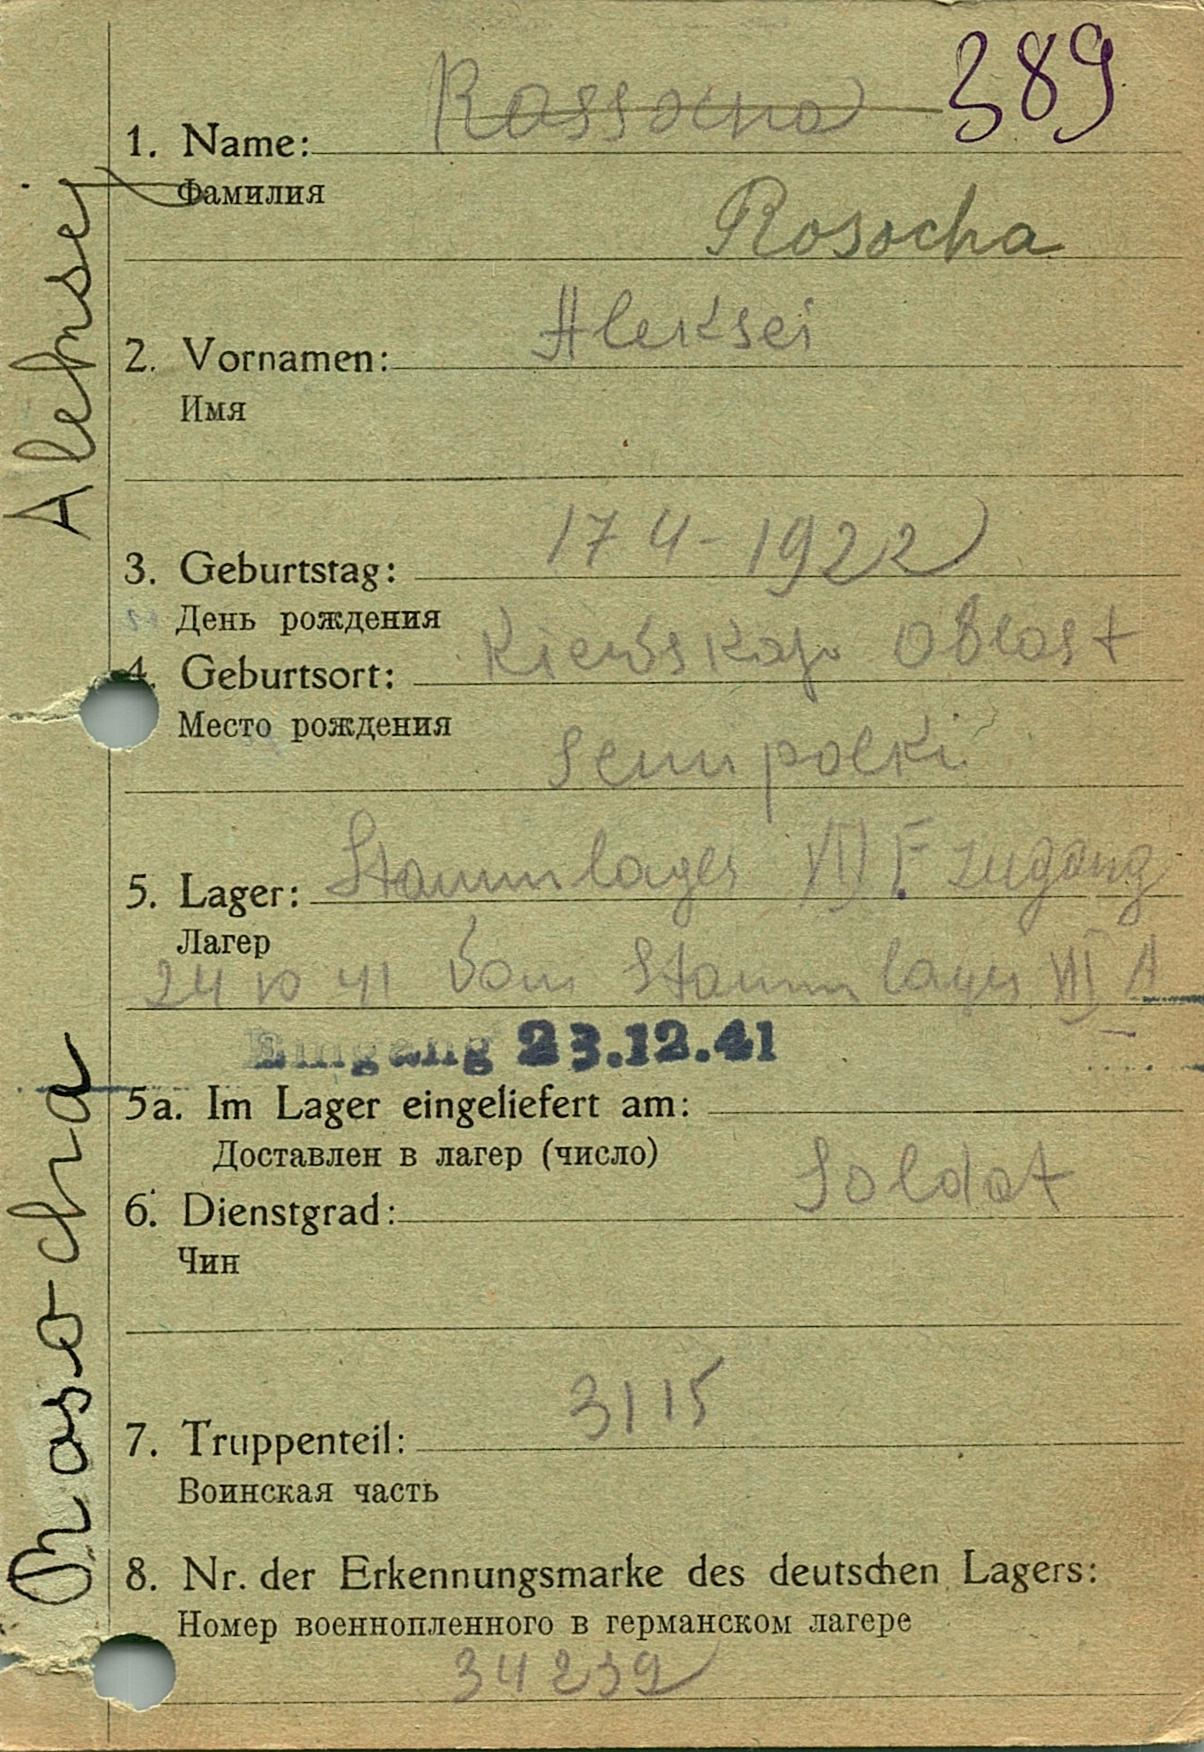 389
Rossocha
1. Name:
Фамилия
Rosocha
Aleksei
2. Vornamen:
Имя
17 4-1922
3. Geburtstag:
День рождения
Kiewskaja Oblast
4. Geburtsort:
Место рождения
Semipolki
5. Lager: Stammlager VII F. Zugang
Лагер
24 10 41 vom Stammlager VII A
Eingang 23.12.41
5a. Im Lager eingeliefert am:
Доставлен в лагер (число)
Soldat
6. Dienstgrad:
Чин
3115
7. Truppenteil:
Воинская часть
8. Nr. der Erkennungsmarke des deutschen Lagers:
Номер военнопленного в германском лагере
34239
Rosocha Aleksej